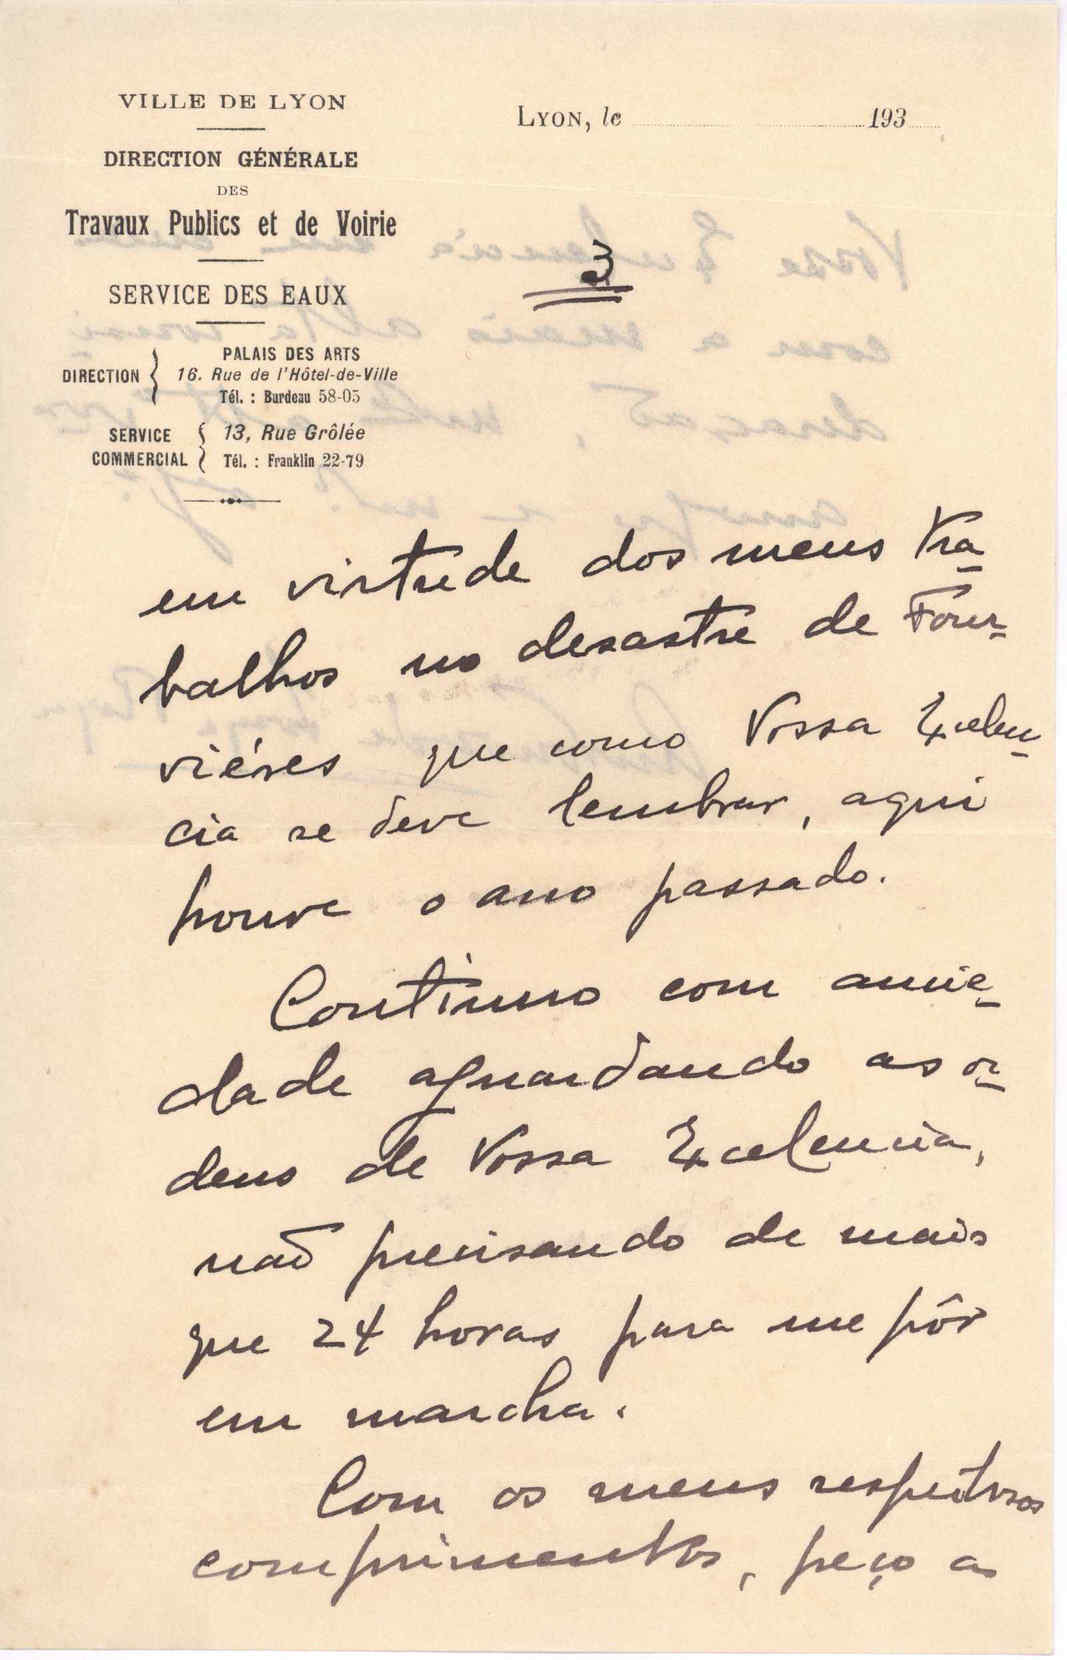 VILLE DE LYON
LYON, le 193
DIRECTION GÉNÉRALE
DES
Travaux Publics et de Voirie
3
SERVICE DES EAUX
DIRECTION { PALAIS DES ARTS
16. Rue de l'Hôtel-de-Ville
Tél. : Burdeau 58-05
SERVICE COMMERCIAL { 13, Rue Grôlée
Tél. : Franklin 22-79
em virtude dos meus tra-
balhos no desastre de Four-
viéres que como Vossa Excelen-
cia se deve lembrar, aqui
houve o ano passado.
Continuo com ancie-
dade aguardando as or-
dens de Vossa Excelencia,
não precisando de mais
que 24 horas para me pôr
em marcha.
Com os meus respeitosos
comprimentos, peço a